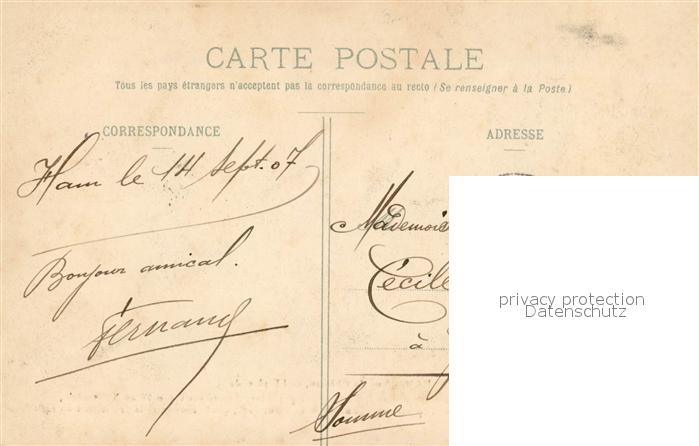 CARTE POSTALE
Tous les pays étrangers n'acceptent pas la correspondance au recto (Se renseigner à la Poste)
CORRESPONDANCE
Ham le 14 Sept. 07
Bonjour amical.
Fernand
ADRESSE
Mademois
Cécile
à
Somme
privacy protection
Datenschutz